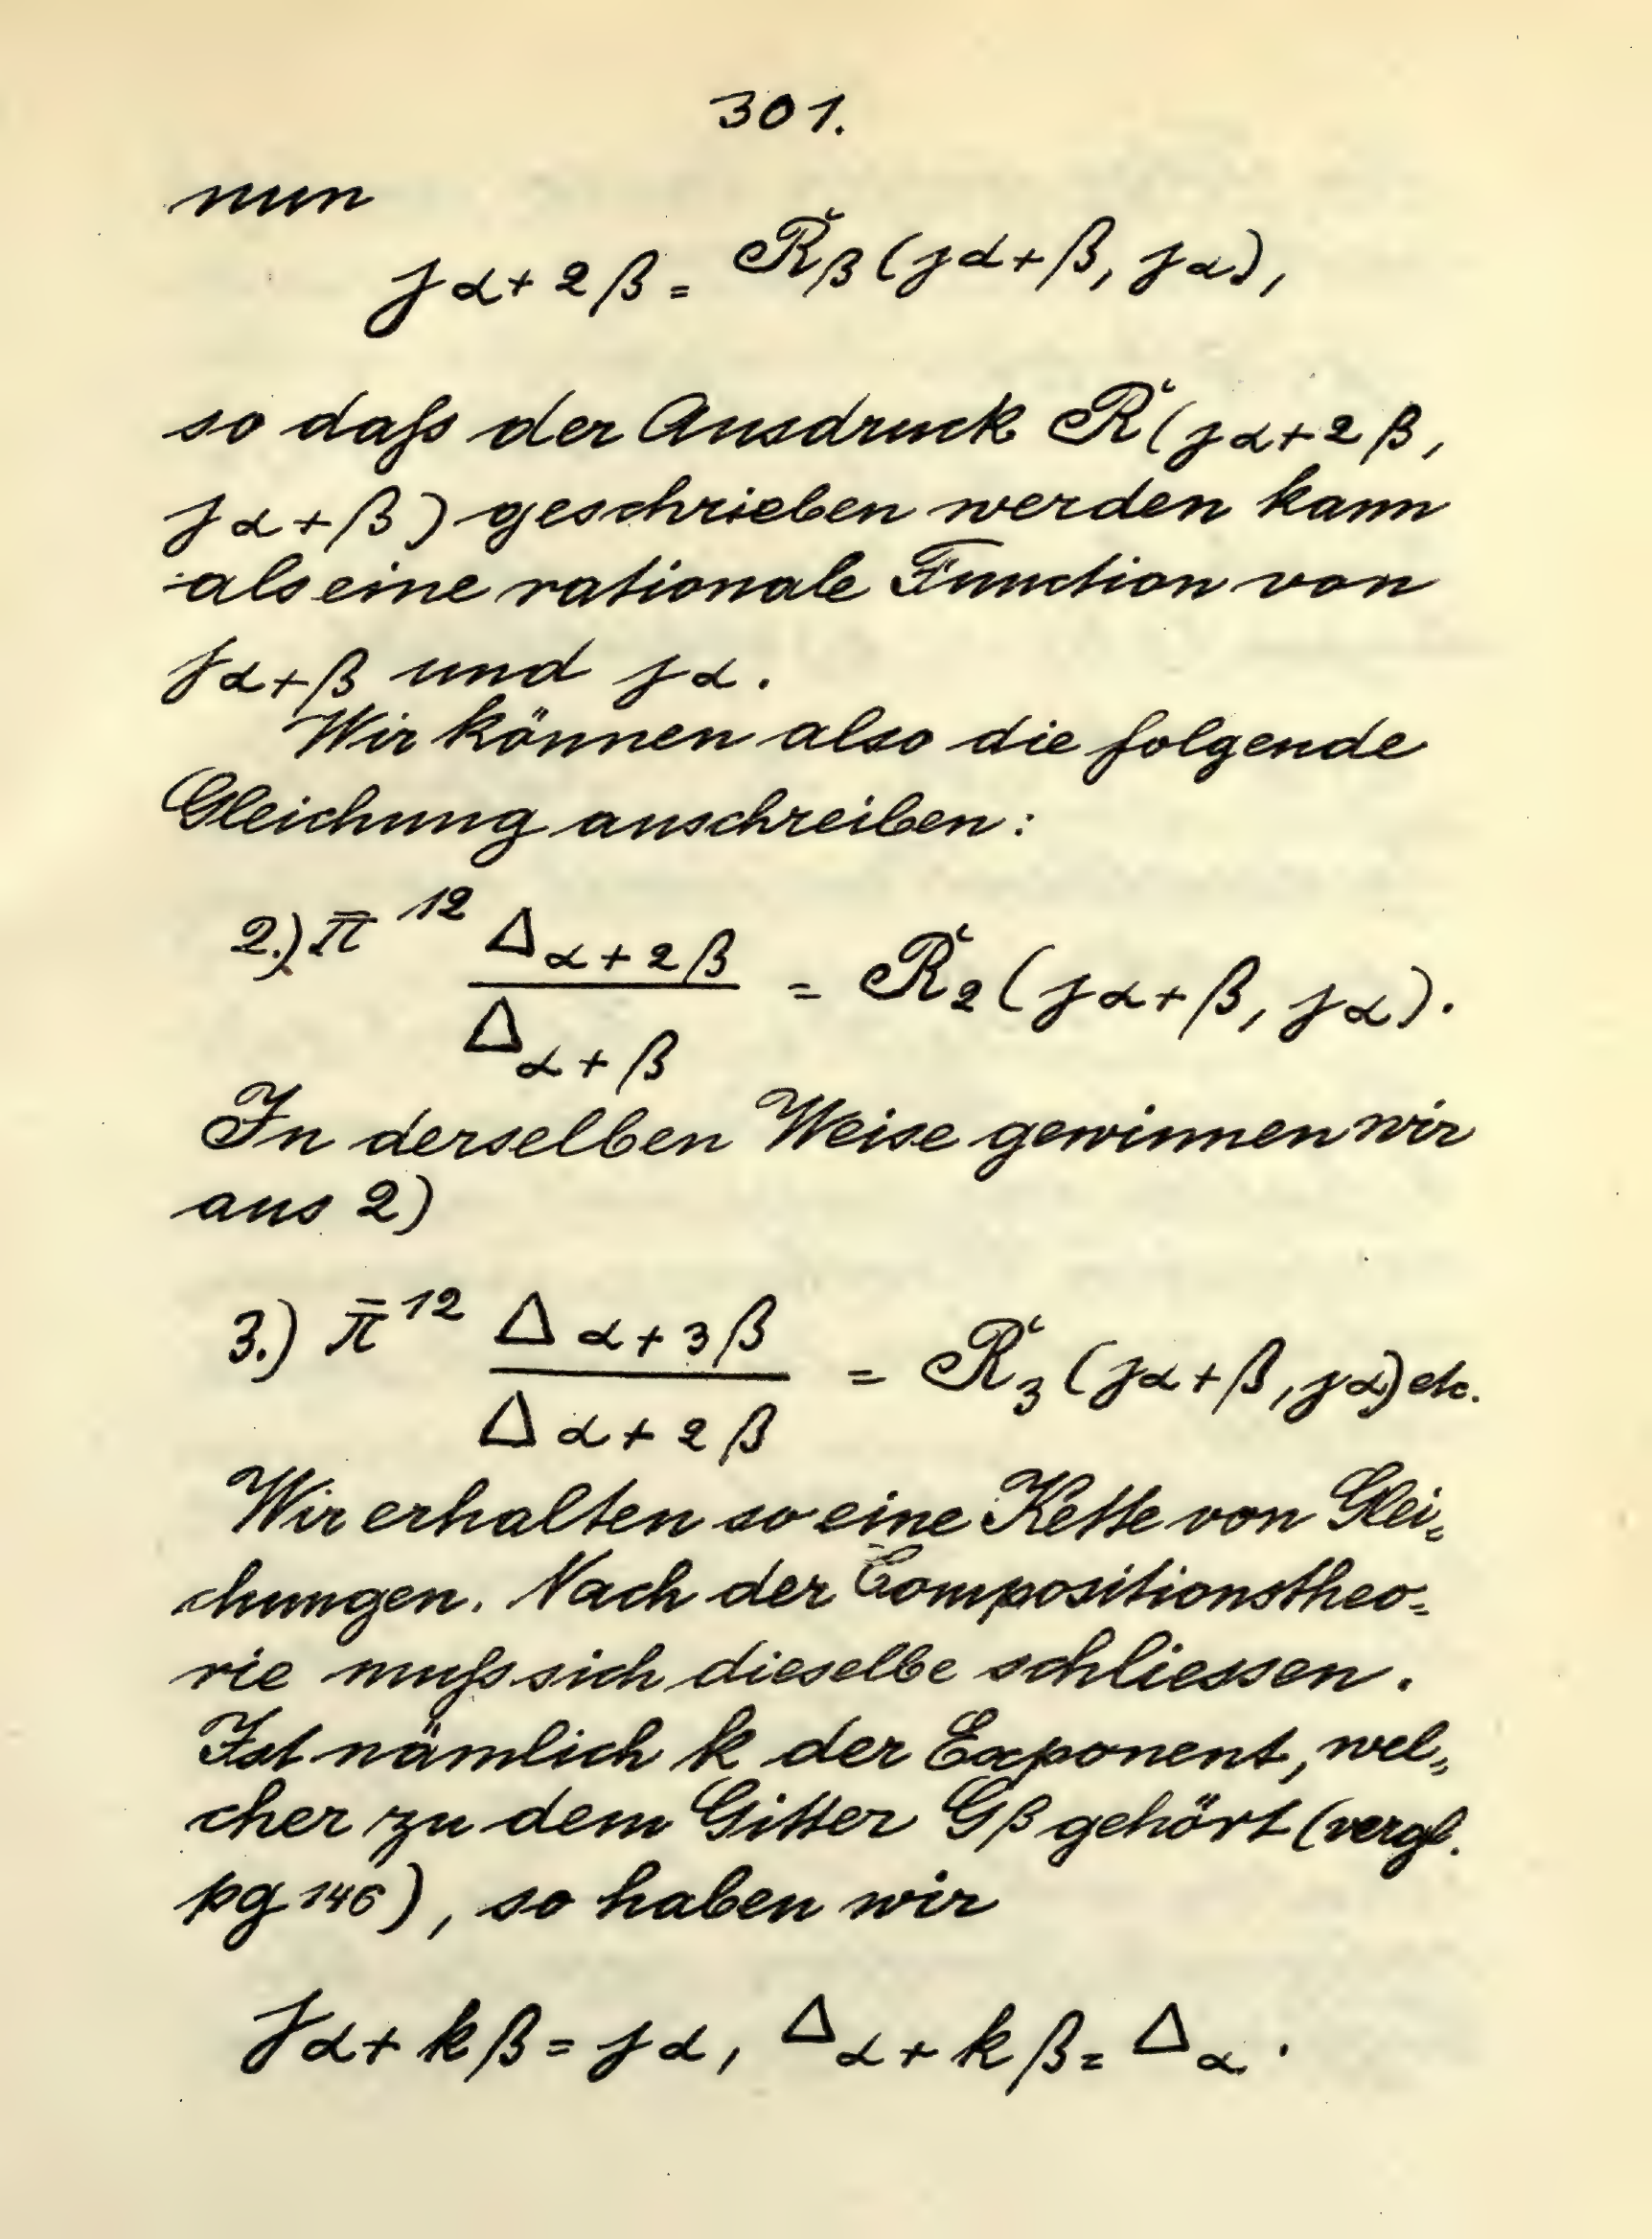 301.
nun
jα+2β = Ř_β (jα+β, jα),
so daſs der Ausdruck Ř (jα+2β,
jα+β) geschrieben werden kann
als eine rationale Function von
jα+β und jα.
Wir können also die folgende
Gleichung anschreiben:
2.) π̄^12 Δ_α+2β / Δ_α+β = Ř_2 (jα+β, jα).
In derselben Weise gewinnen wir
aus 2)
3.) π̄^12 Δα+3β / Δα+2β = Ř_3 (jα+β, jα) etc.
Wir erhalten so eine Kette von Glei=
chungen. Nach der Compositionstheo=
rie muſs sich dieselbe schliessen.
Ist nämlich k der Exponent, wel=
cher zu dem Gitter Gβ gehört (vergl.
pg 146), so haben wir
jα+kβ = jα, Δ_α+kβ = Δ_α.